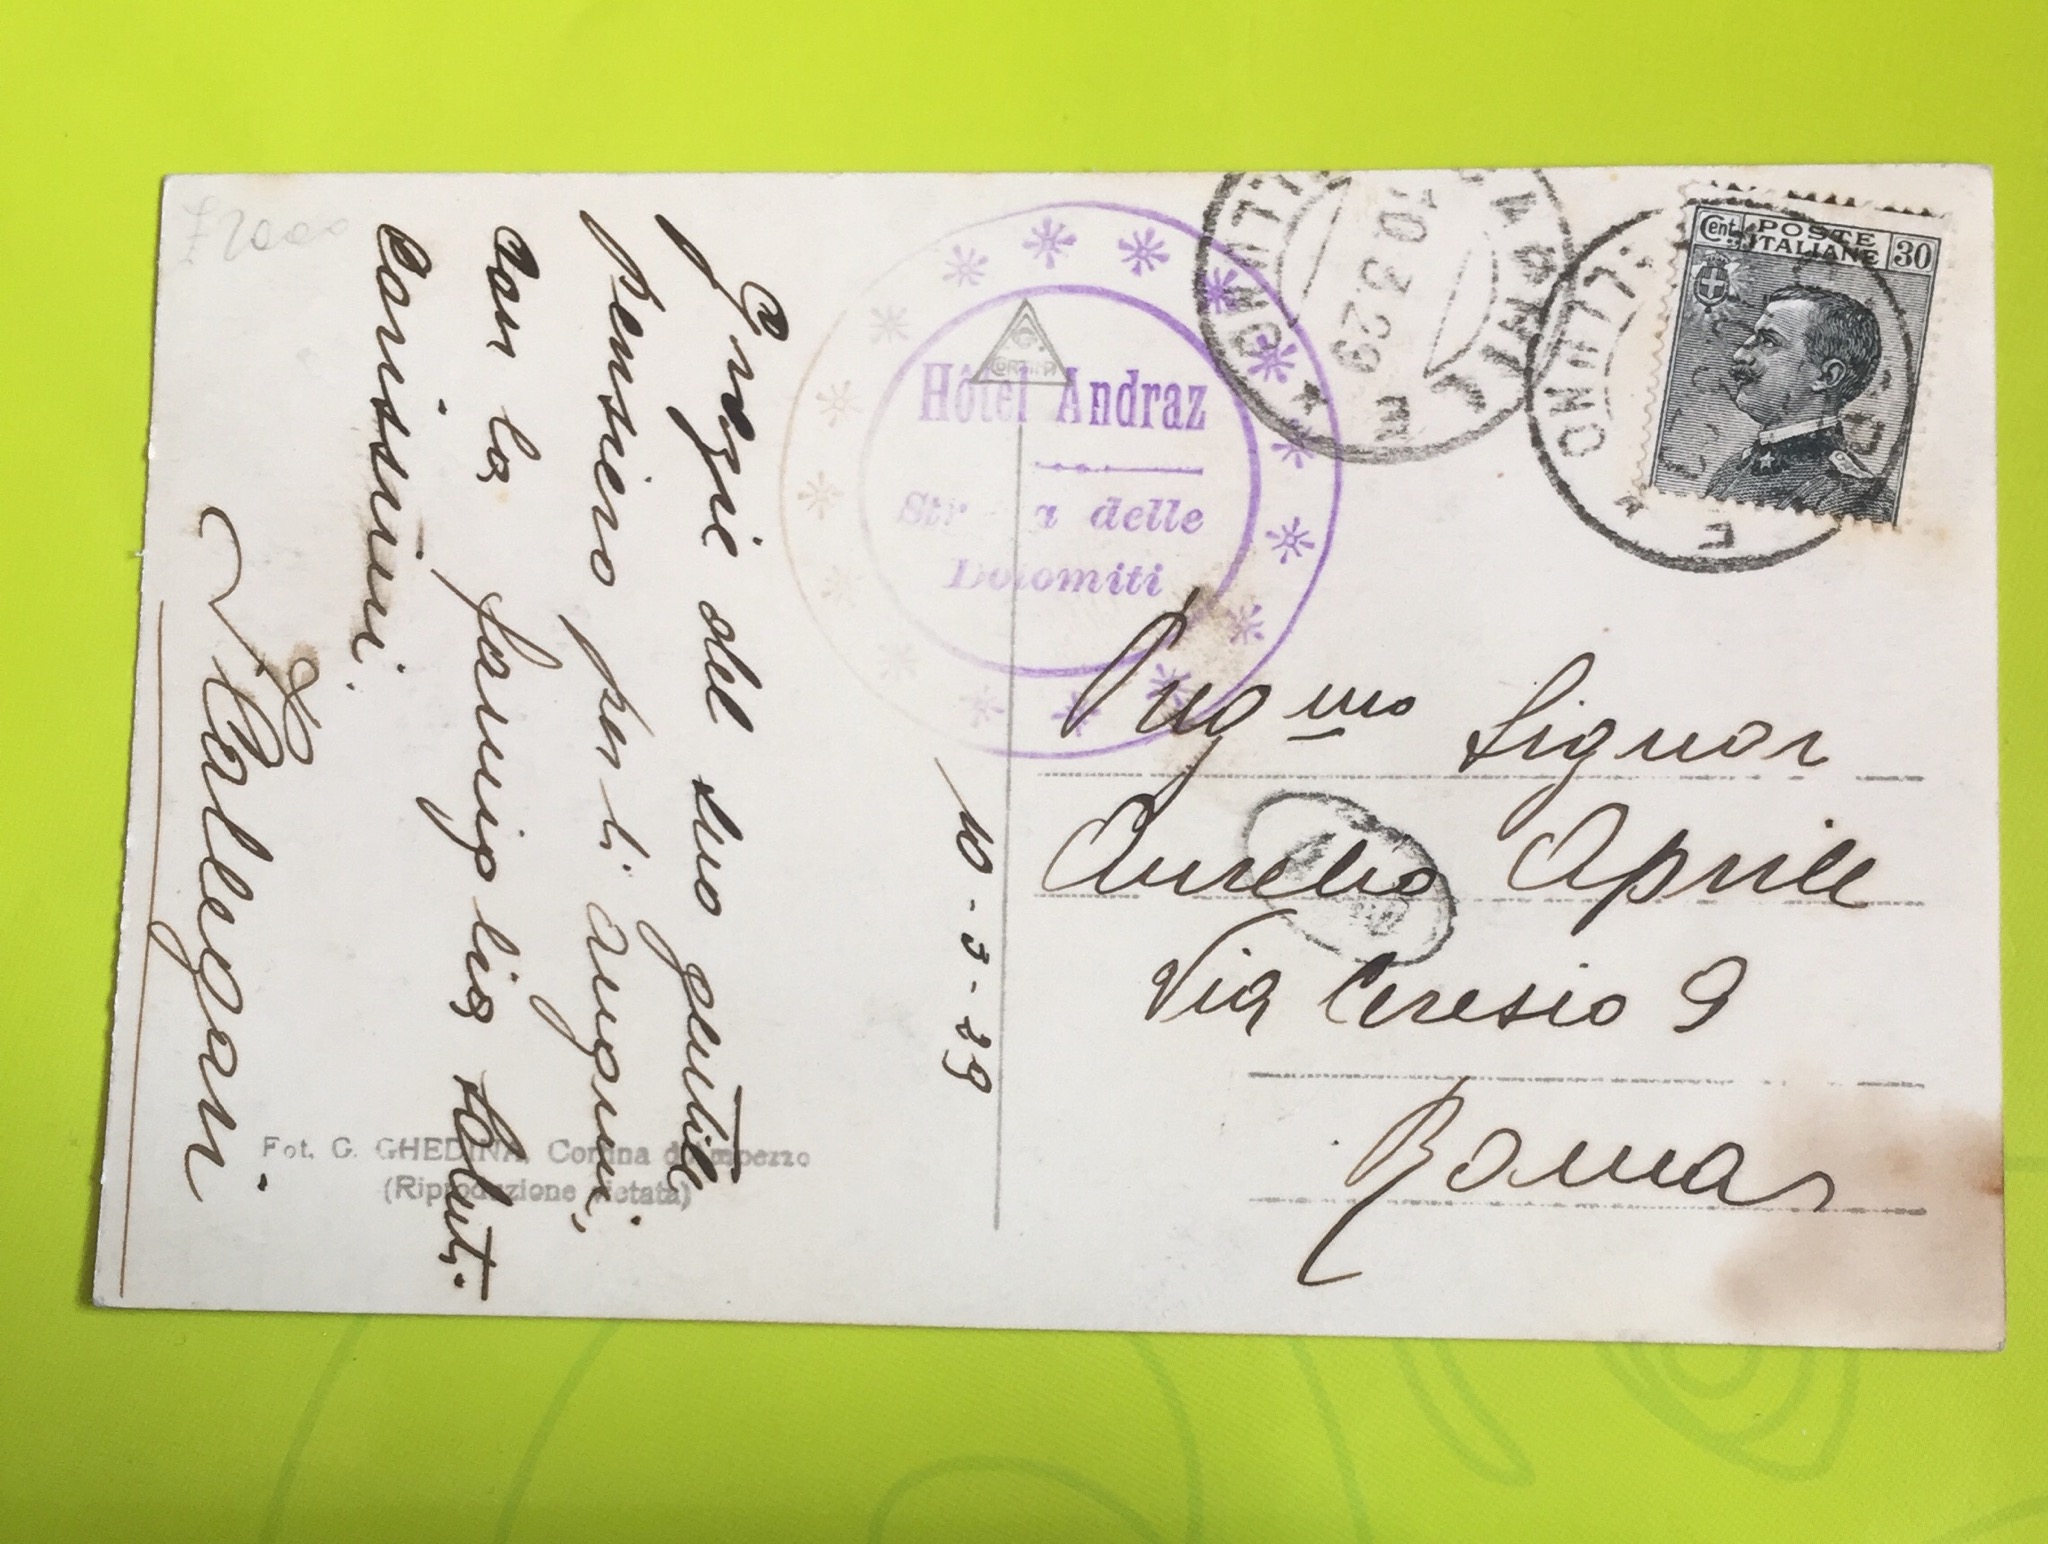 £ 2000
Grazie del suo gentile
pensiero per li auguri,
con la famiglia saluti
carissimi.
Callegari
10-3-29
Fot. G. GHEDINA, Cortina d'Ampezzo
(Riproduzione vietata)
G.
CORTINA
Hôtel Andraz
Strada delle
Dolomiti
10.3.29
Cent. POSTE 30
ITALIANE
Preg.mo Signor
Aurelio Aprile
Via Ceresio 9
Roma